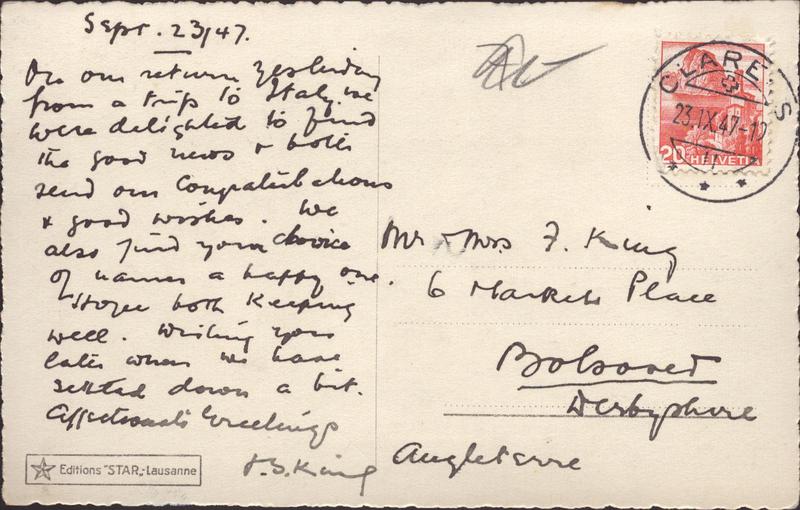 Sept. 23/47.
On our return yesterday
from a trip to Italy we
were delighted to find
the good news & both
send our Congratulations
& good wishes. We
also find your choice
of names a happy one.
Hope both keeping
well. Writing you
later when we have
settled down a bit.
Affectionate Greetings
J.S. King
Editions "STAR„-Lausanne
CLARENS
23.IX.47-1
20 HELVETIA
Mr & Mrs F. King
6 Markets Place
Bolsover
Derbyshire
Angleterre